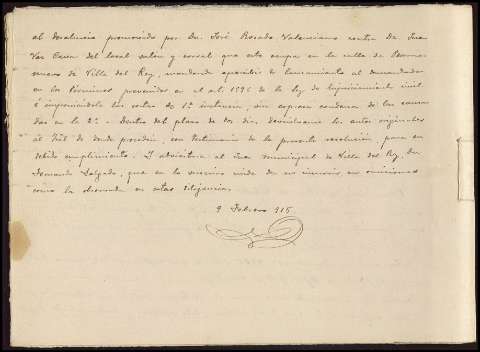 al desahucio promovido por Dn. José Rosado Valenciano contra Dn Juan
Vaz Casa del local salón y corral que este ocupa en la calle de
nueva de Villa del Rey, mandando apercibir de lanzamiento al demandado
en los términos prevenidos en el art. 1596 de la ley de Enjuiciamiento civil
é imponiéndole las costas de 1ª instancia, sin expresa condena de las causa
das en la 2ª. Dentro del plazo de dos días devuélvanse los autos originales
al Jdo. de donde proceden, con testimonio de la presente resolución, para su
debido cumplimiento. Y advierto al Juez municipal de Villa del Rey, Dn.
Fernando Salgado, que en lo sucesivo cuide de no incurrir en omisiones
como la observada en estas diligencias.
9 Febrero 915